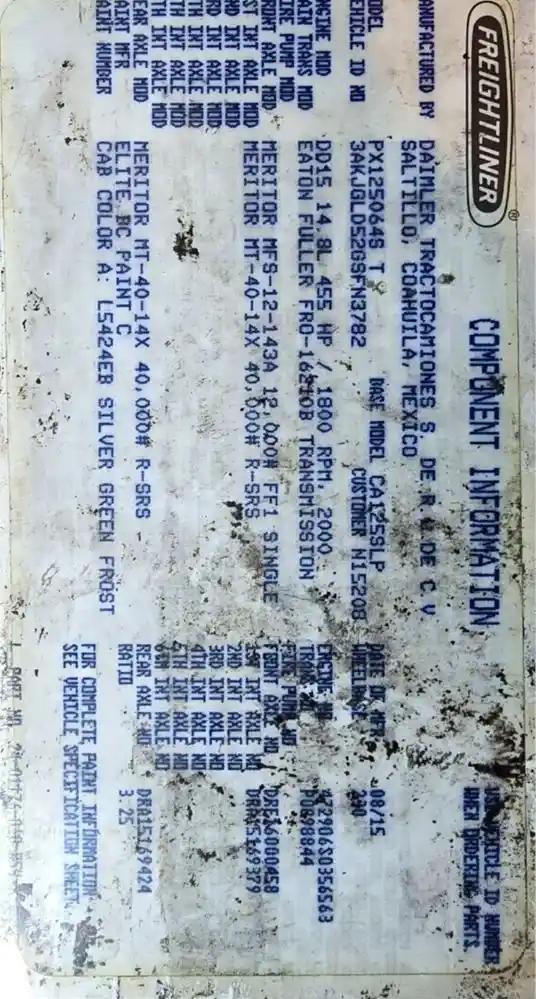 FREIGHTLINER®
COMPONENT INFORMATION
VEHICLE ID NUMBER
WHEN ORDERING PARTS.
ANUFACTURED BY DAIMLER TRACTOCAMIONES S. DE R.L. DE C.V
SALTILLO, COAHUILA, MEXICO
ODEL PX125064S T BASE MODEL CA125SLP DATE OF MFR 08/15
EHICLE ID NO 3AKJGLD52GSFN3782 CUSTOMER N15208 WHEELBASE
NGINE MOD DD15 14.8L 455 HP / 1800 RPM, 2000 ENGINE NO 472906S0356563
AIN TRANS MOD EATON FULLER FRO-16210B TRANSMISSION TRANS
IRE PUMP MOD FIRE PUMP NO
RONT AXLE MOD MERITOR MFS-12-143A 12,000# FF1 SINGLE FRONT AXLE NO
ST INT AXLE MOD MERITOR MT-40-14X 40,000# R-SRS 1ST INT AXLE NO DRA15169379
ND INT AXLE MOD 2ND INT AXLE NO
RD INT AXLE MOD 3RD INT AXLE NO
TH INT AXLE MOD 4TH INT AXLE NO
TH INT AXLE MOD 5TH INT AXLE NO
TH INT AXLE MOD 6TH INT AXLE NO
EAR AXLE MOD MERITOR MT-40-14X 40,000# R-SRS - REAR AXLE NO DRA15169424
AINT MFR ELITE BC PAINT C RATIO 3.25
AINT NUMBER CAB COLOR A: L5424EB SILVER GREEN FROST
FOR COMPLETE PAINT INFORMATION
SEE VEHICLE SPECIFICATION SHEET.
PART NO.